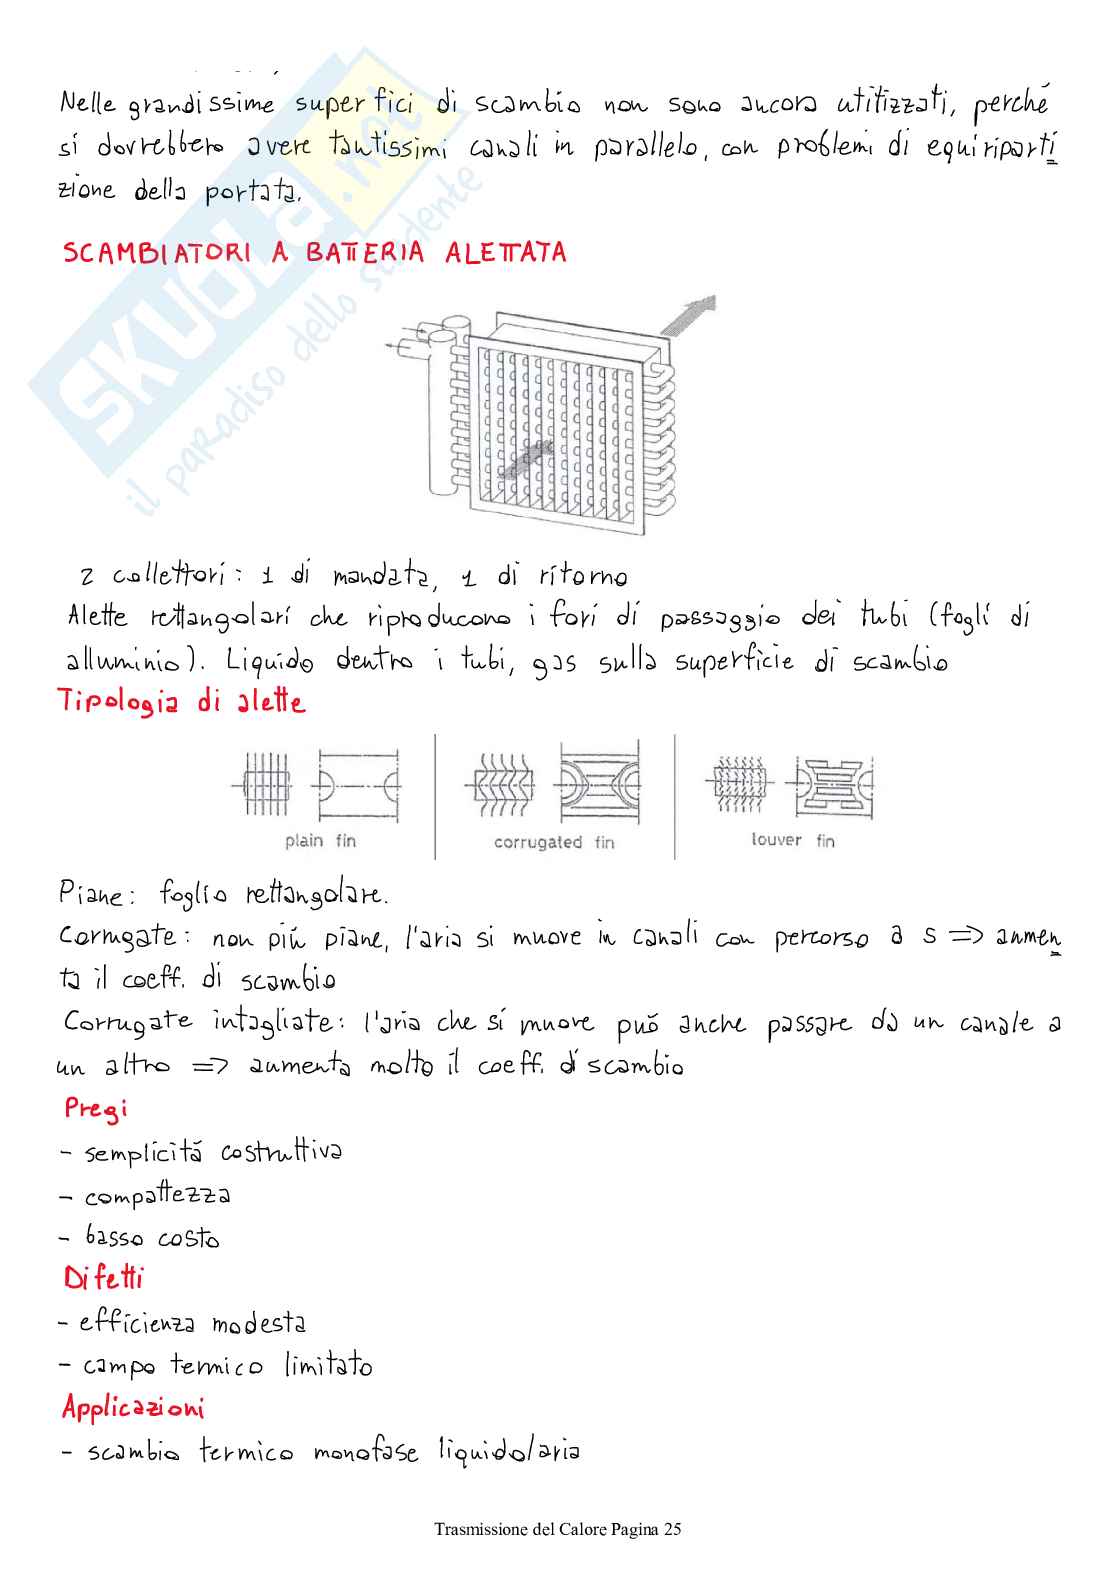 Nelle grandissime superfici di scambio non sono ancora utitizzati, perché
si dovrebbero avere tantissimi canali in parallelo, con problemi di equiriparti
zione della portata.
SCAMBIATORI A BATTERIA ALETTATA
2 collettori: 1 di mandata, 1 di ritorno
Alette rettangolari che riproducono i fori di passaggio dei tubi (fogli di
alluminio). Liquido dentro i tubi, gas sulla superficie di scambio
Tipologia di alette
plain fin
corrugated fin
louver fin
Piane: foglio rettangolare.
Corrugate: non più piane, l'aria si muove in canali con percorso a s => aumen
ta il coeff. di scambio
Corrugate intagliate: l'aria che si muove può anche passare da un canale a
un altro => aumenta molto il coeff. di scambio
Pregi
- semplicità costruttiva
- compattezza
- basso costo
Difetti
- efficienza modesta
- campo termico limitato
Applicazioni
- scambio termico monofase liquido/aria
Trasmissione del Calore Pagina 25
SKUOLA.net
il paradiso dello studente